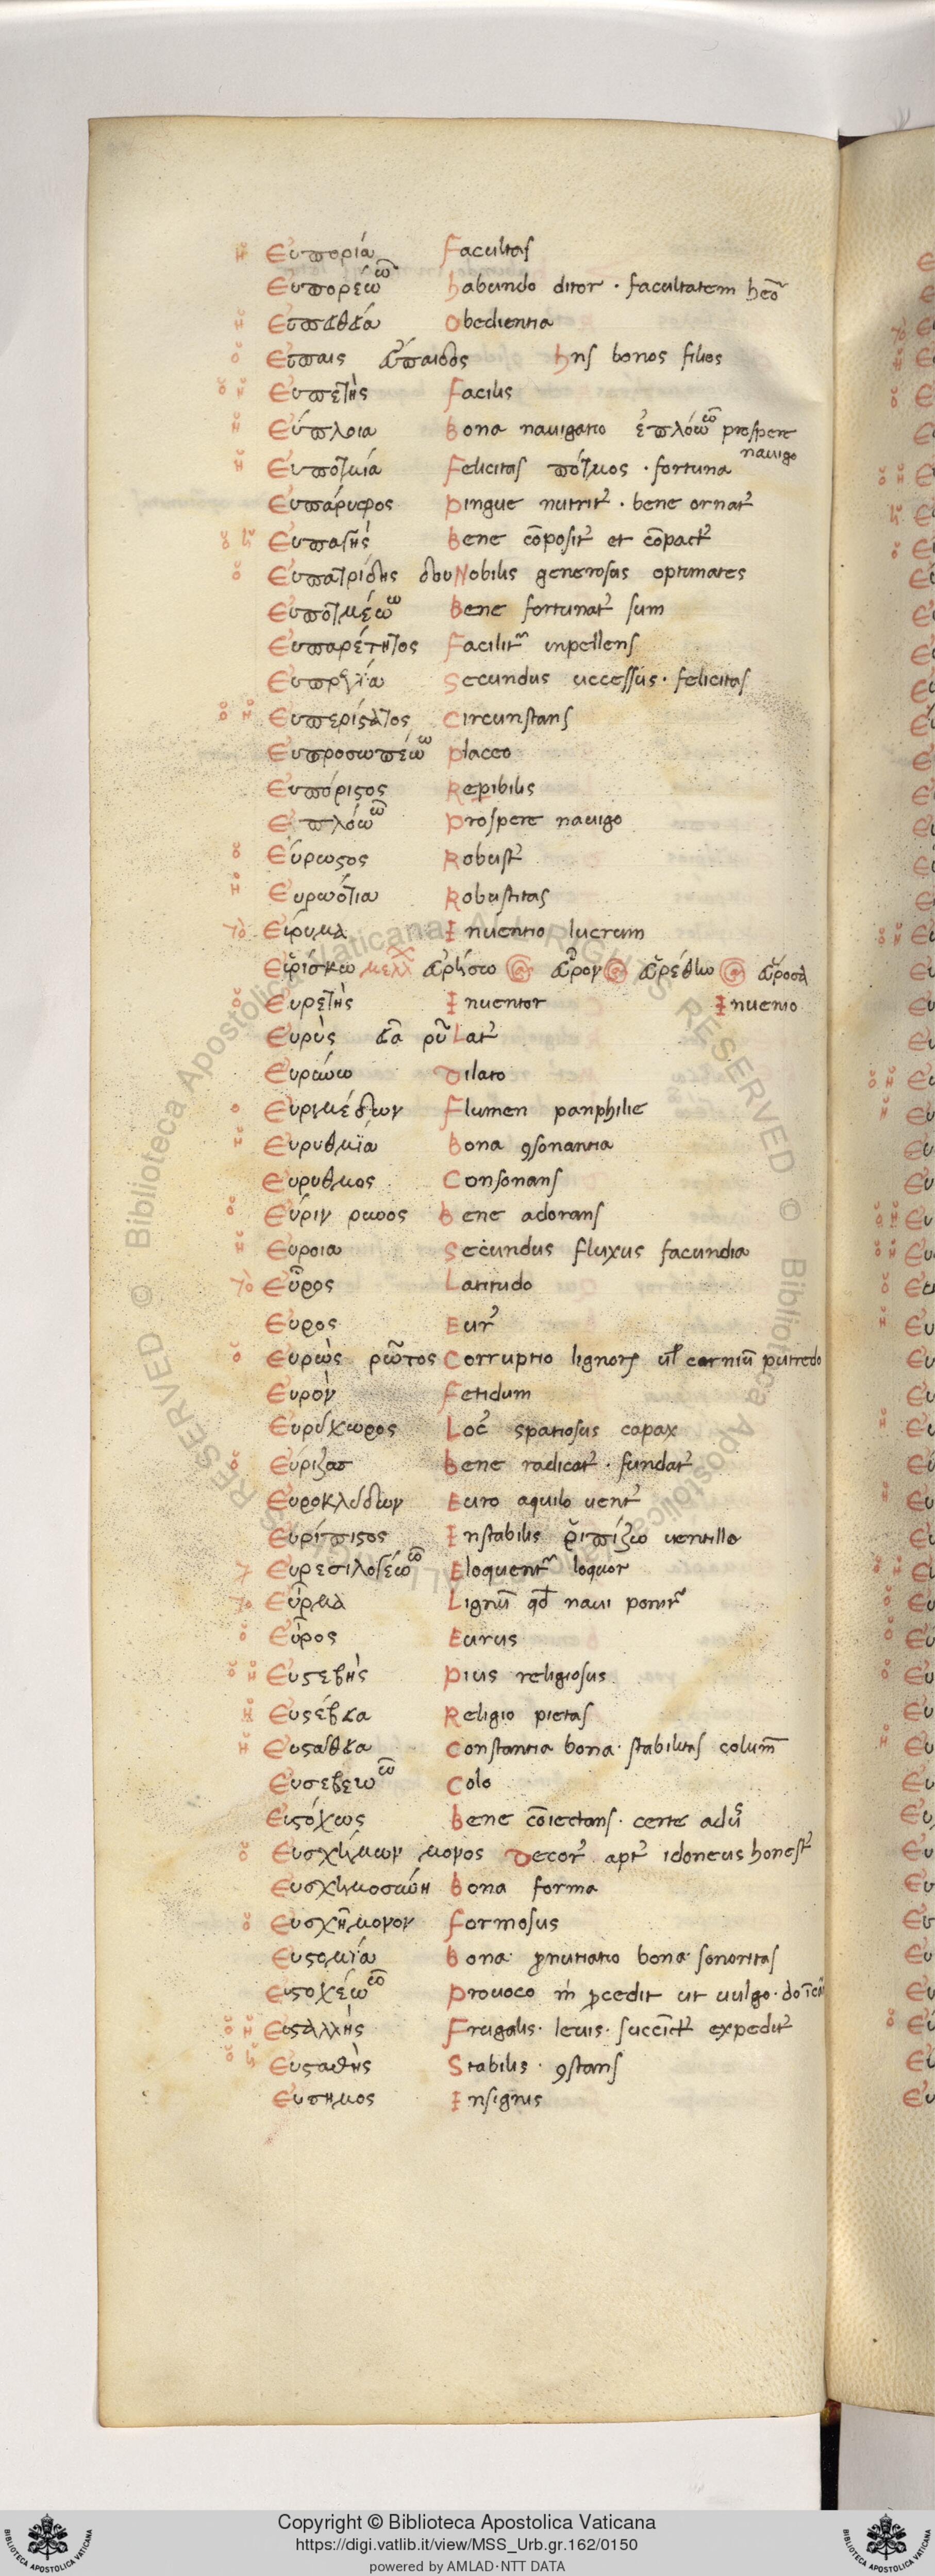 ἡ Εὐπορία Facultas
Εὐπορέω ῶ habundo ditor · facultatem heo
ἡ Εὐπείθεια Obedientia
ὁ Εὔπαις εὔπαιδος hns bonos filios
ὁ ἡ Εὐπετὴς Facilis
ἡ Εὔπλοια Bona nauigatio ἐπλόω ῶ prospere nauigo
ἡ Εὐποτμία Felicitas πότμος · fortuna
Εὐπάρυφος Pingue nutrit' · bene ornat'
ὁ ἡ Εὐπαγής Bene cōposit' et cōpact'
ὁ Εὐπατρίδης δου Nobilis generosus optimates
Εὐποτμέω ῶ Bene fortunat' sum
Εὐπαρέτητος Facilit' inpellens
Secundus uccessus · felicitas
ὁ ἡ Εὐπερίστατος Circunstans
Εὐπροσωπέω ῶ placeo
Εὐπόριστος Reperibilis
Εὐπλόω ῶ Prospere nauigo
ὁ Εὔρωστος Robust'
ἡ Εὐρωστία Robustitas
τὸ Εὕρυμα Inuentio lucrum
Εὑρίσκω μελλ εὑρήσω εὗρον εὑρέθην
ὁ Εὑρετὴς Inuentor Inuenio
Εὐρὺς εῖα ρὺ Lat'
Εὐρύνω Dilato
ὁ Εὐρυμέδων Flumen panphilie
ἡ Εὐρυθμία Bona ꝯsonantia
Εὔρυθμος Consonans
ὁ Εὔριν ρινος Bene adorans
ἡ Εὔροια Secundus fluxus facundia
τὸ Εὖρος Latitudo
Εὖρος Eur'
ὁ Εὐρὼς ρῶτος Corruptio lignorꝝ ul' carniū putredo
Εὐρὸν Fetidum
Εὐρύχωρος Loc' spatiosus capax
ὁ Εὔριζος bene radicat' · fundat'
Εὐροκλύδων Euro aquilo uent'
Εὐρίπιστος Instabilis ῥιπίζω uentillo
Εὑρεσιλογέω ῶ Eloquent' loquor
τὸ Εὗρμα Lignū qd naui ponit'
ὁ Εὖρος Eurus
ὁ ἡ Εὐσεβὴς Pius religiosus
ἡ Εὐσέβεια Religio pietas
ἡ Εὐστάθεια Constantia bona · stabilitas colum̄
Εὐσεβέω ῶ Colo
Εὐστόχως Bene cōiectans · certe adu'
ὁ Εὐσχήμων μονος Decor' apt' idoneus honest'
Εὐσχημοσύνη Bona forma
ὁ Εὐσχῆμονον Formosus
Εὐστομία Bona pnutiatio bona sonoritas
Εὐστοχέω ῶ Prouoco
ὁ ἡ Εὐσταλὴς Frugalis · leuis · succīct' expedit'
ὁ ἡ Εὐσταθὴς Stabilis · ꝯstans
Εὔσημος Insignis
Copyright © Biblioteca Apostolica Vaticana
https://digi.vatlib.it/view/MSS_Urb.gr.162/0150
powered by AMLAD·NTT DATA